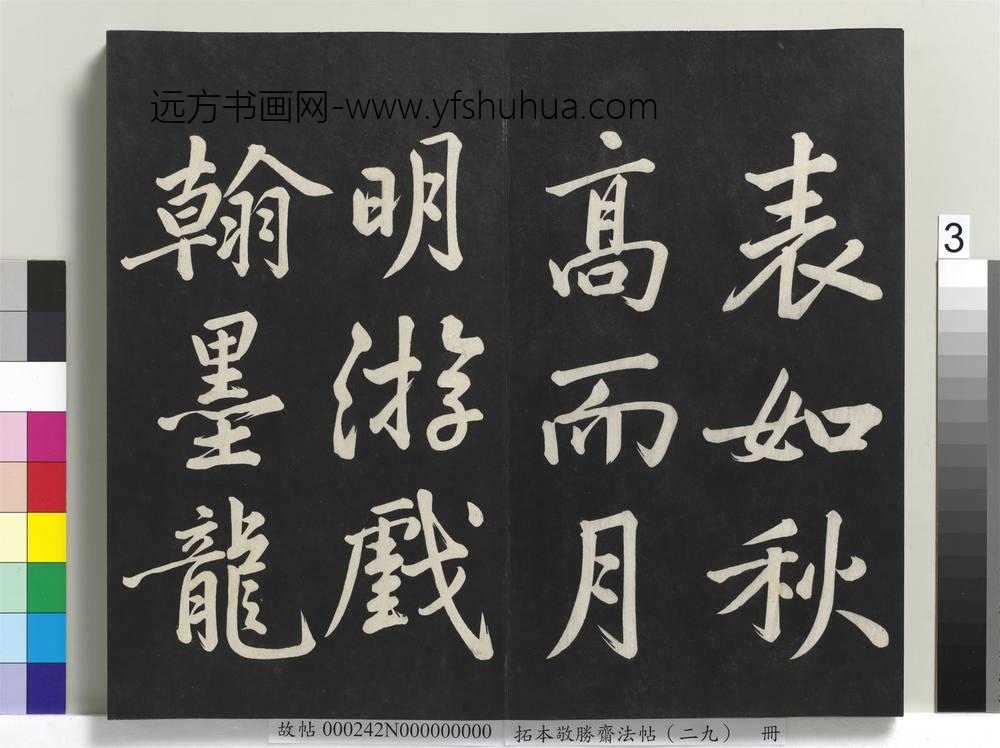 远方书画网-www.yfshuhua.com
表如秋
高而月
明游戲
翰墨龍
3
故帖 000242N000000000 拓本敬勝齋法帖（二九） 冊